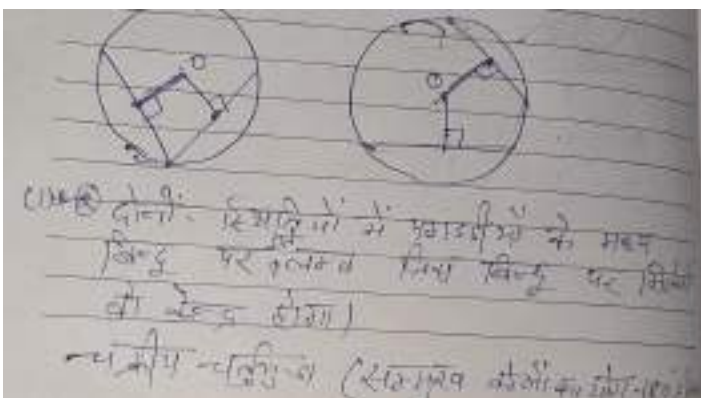 O O
दोनों स्थितियों में के मध्य
बिन्दु पर लम्ब जिस बिन्दु पर मिले
वो केन्द्र होगा)
चक्रीय चतुर्भुज (सम्मुख कोणों का योग-180°